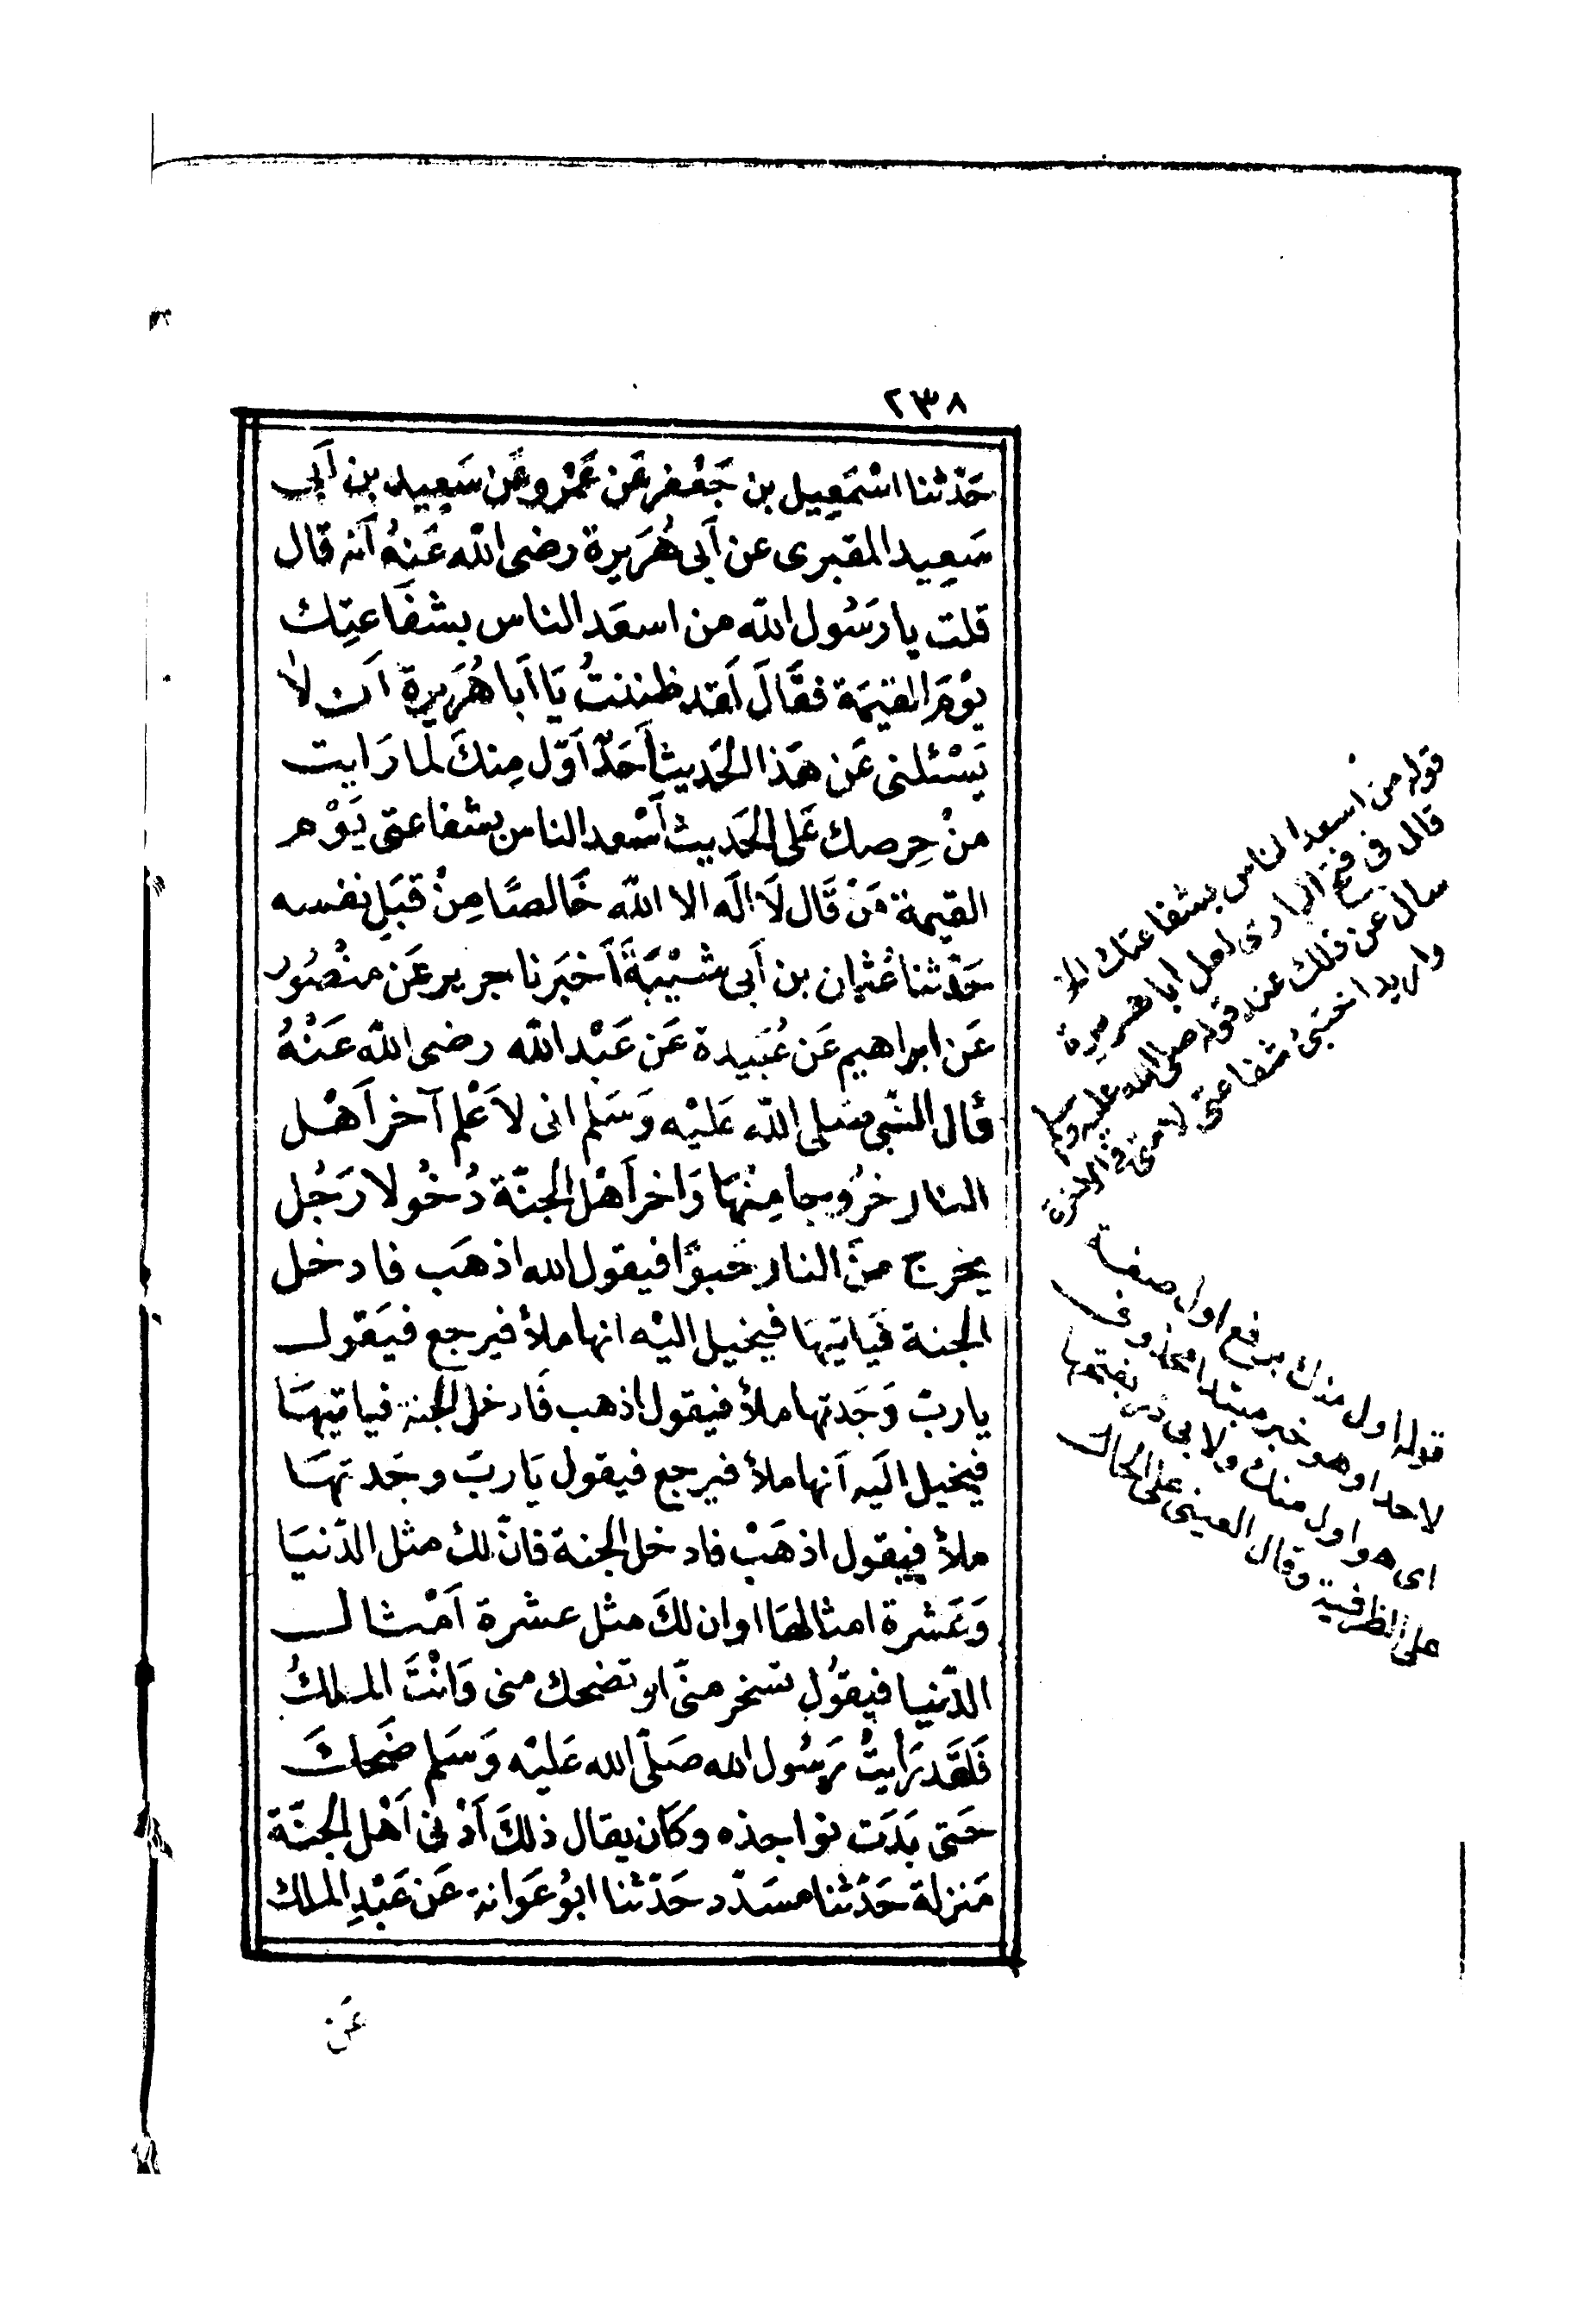 ٢٣٨
حَدّثنا اسْمَعِيل بن جَعْفر عَن عَمْرو عَن سَعِيد بن اَبى
سَعِيد المقبرى عن اَبى هُرَيرة رضى الله عَنهُ اَنه قال
قلت يا رَسُول الله من اسعَد الناس بشفَاعتِك
يَوْمَ القيٰمَة فقَالَ لَقد ظننتُ يَا اَبا هُرَيرة اَن لاٰ
يَسْئلنى عَن هَذا الحَديث اَحَدٌ اَوّل مِنكَ لما رَايت
منْ حِرصك عَلى الحَديث اَسْعد الناس بشفاعتى يَوْم
القيمة مَنْ قَال لاَ الَه الا الله خَالصًا مِنْ قبَل نفسه
حَدّثنا عُثمان بن اَبى شَيْبَةَ اَخبَرنا جرير عَن منْصُور
عَن ابراهيم عَن عُبَيدة عَن عَبْد الله رضى الله عَنْهُ
قال النّبى صَلى الله عَليْه وَسَلم انى لاَعْلم آخر اَهْل
النار خرُوجا مِنْهَا وَاخر اَهْل الجنّة دُخُولا رَجُل
يخرج منَ النار حَبوًا فيقول الله اذهَب فادخل
الجنة فيَاتيهَا فيخيل اليْه انها ملأ فيرجع فيَقول
يارب وَجَدتها ملأ فيقول اذهب فَادخل الجنة فياتيهَا
فيخيل اليَه اَنها ملأ فيرجع فيقول يَاربّ وجَدتهَا
ملأ فيقول اذهَبْ فادخل الجنة فانّ لك مثل الدّنيَا
وَعَشرة امثالهَا او ان لكَ مثل عشرة اَمْثال
الدّنيا فيقوُل تسخر منّى او تضحك منى وَانْتَ الملكُ
فَلقَد رَأيتُ رَسُول الله صَلّى الله عَليْه وَسَلم ضَحكَ
حَتى بَدَت نواجذه وكَان يقال ذلكَ اَدْنى اَهْل الجنّة
مَنزلة حَدّثنا مسَدّد حَدّثنا ابُو عَوانة عَن عَبْدِ الملك
عَن
قوله من اسعد الناس بشفاعتك الخ
قال فى فتح البارى لعل ابا هريرة
سال عن ذلك عند قوله صلى الله عليه وسلم
واريد اختبئ شفاعتى لامتى فى الاخرة
قوله اول منك برفع اول صفة
لاحد او هو خبر مبتدا محذوف
اى هو اول منك ولابى ذر بفتحها
على الظرفية وقال العينى على الحال